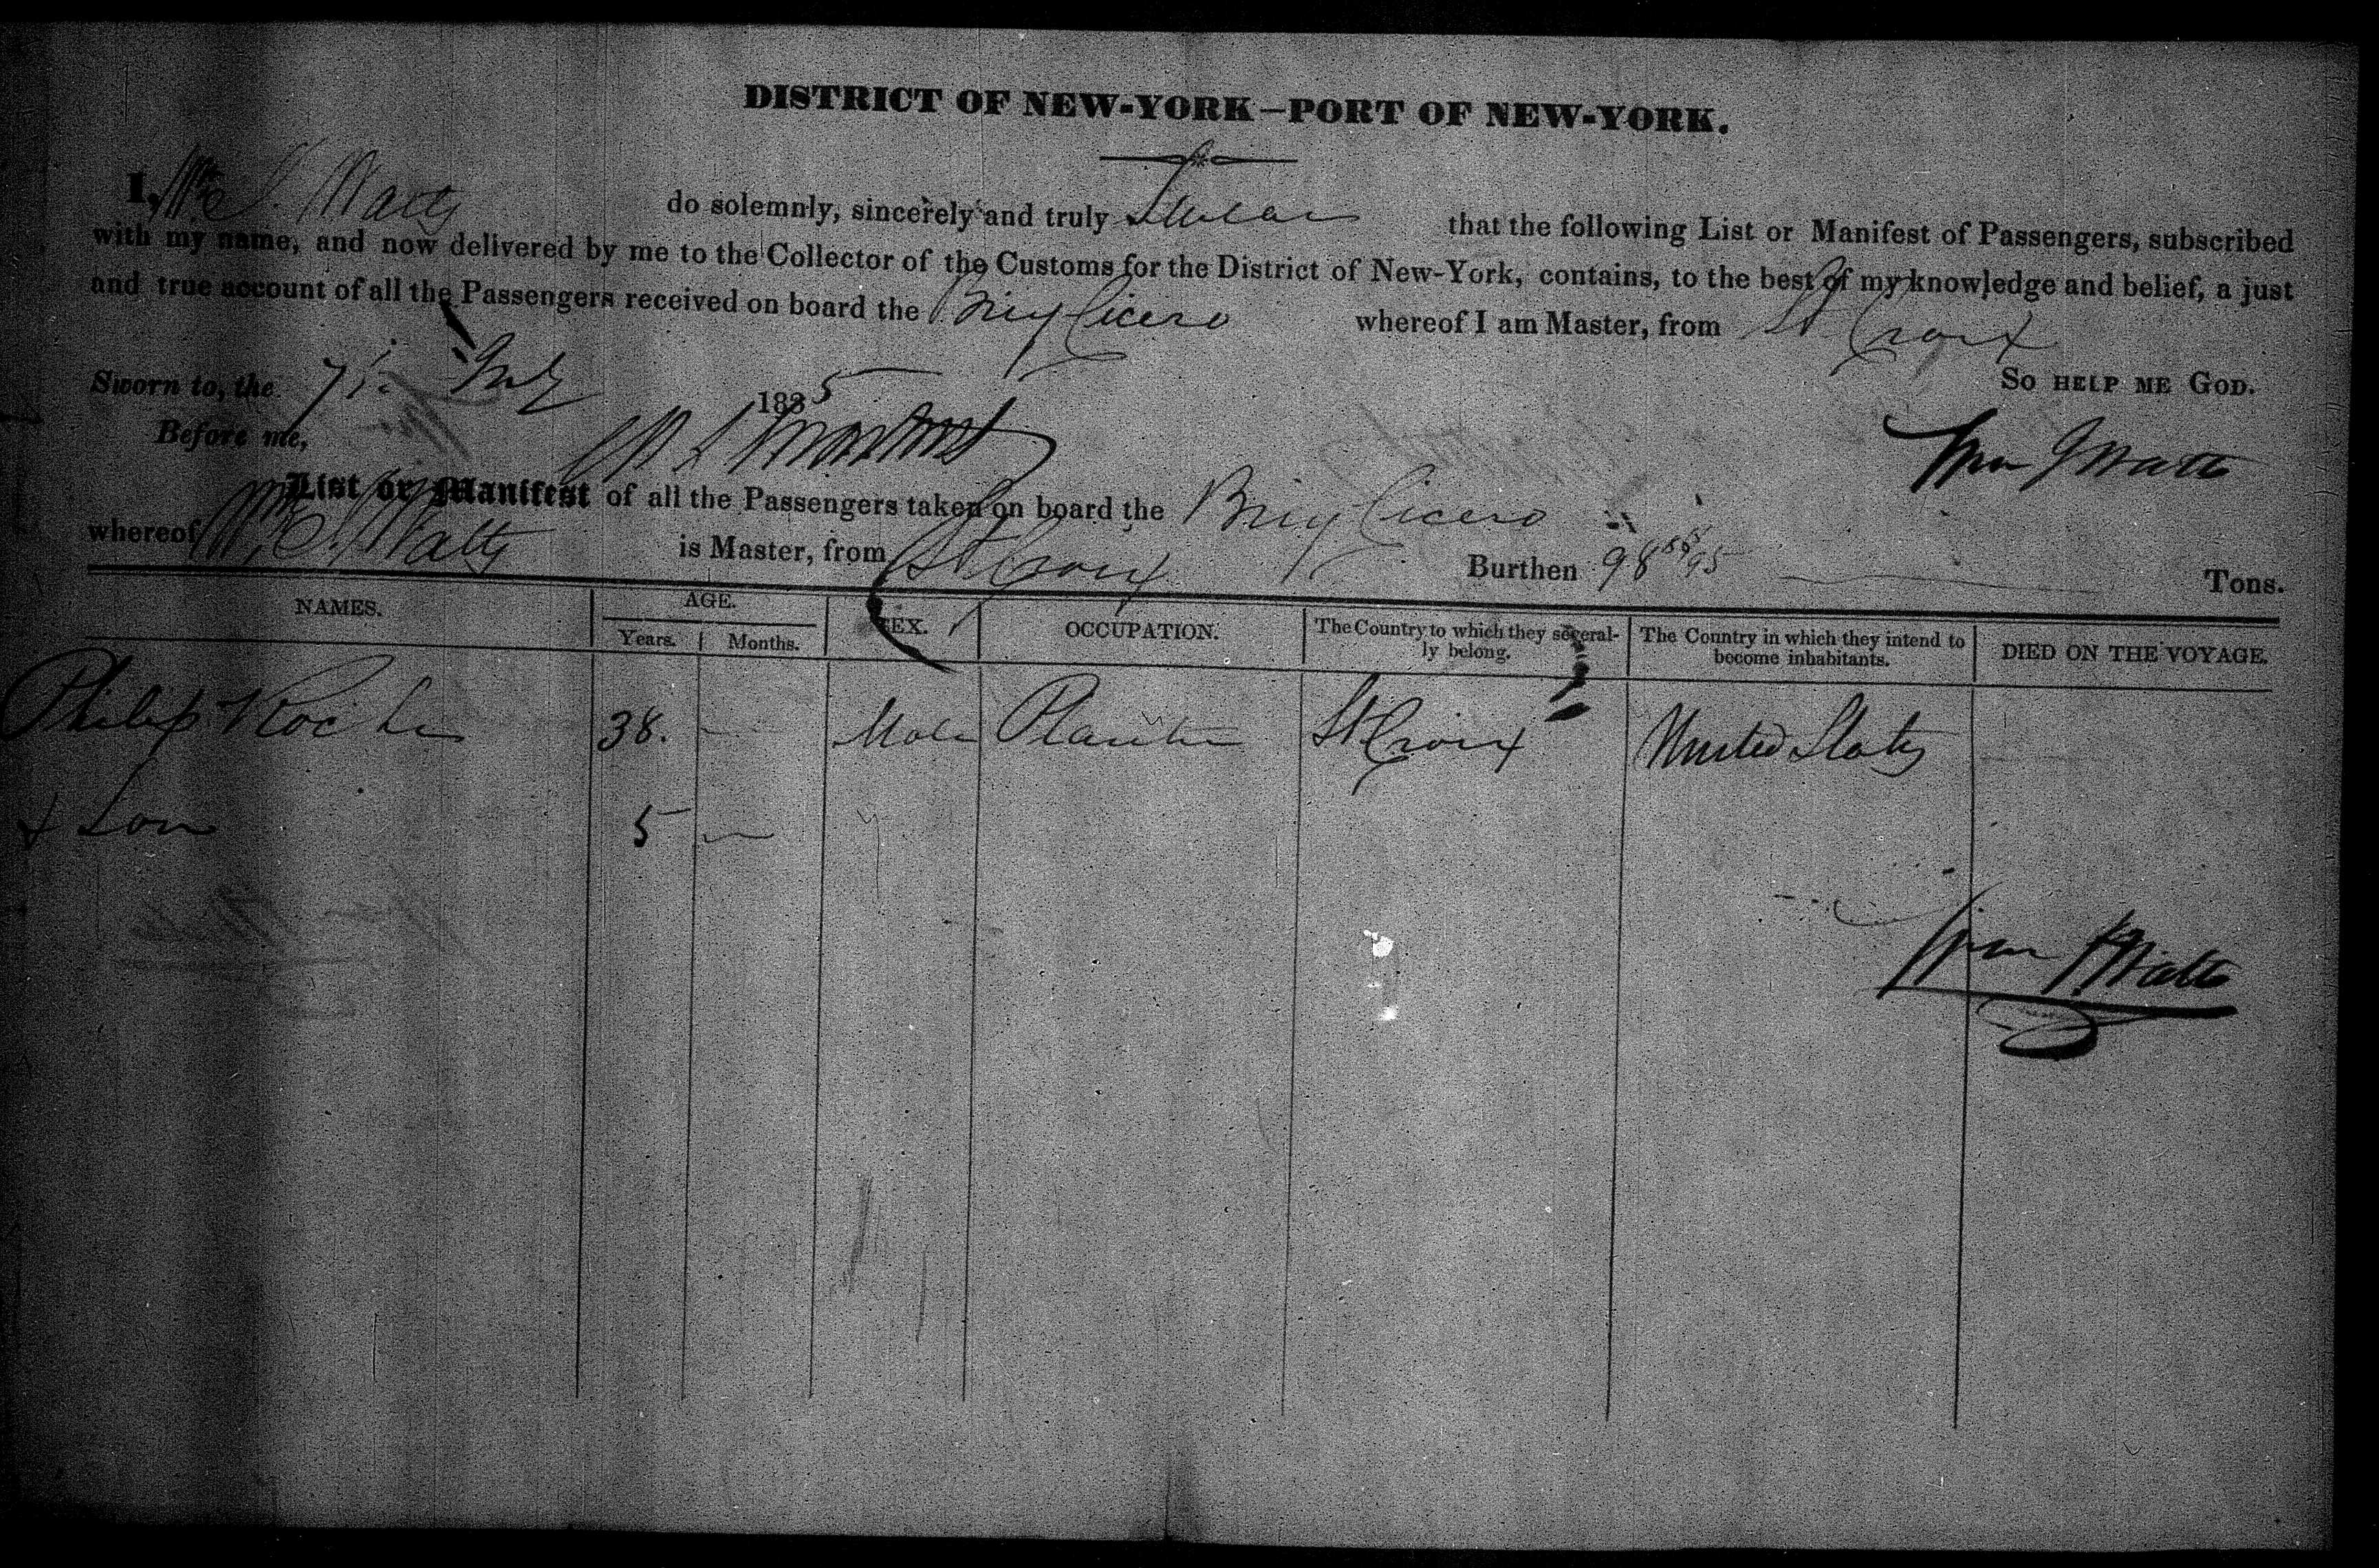 DISTRICT OF NEW-YORK—PORT OF NEW-YORK.
I, Wm S. Watts do solemnly, sincerely and truly that the following List or Manifest of Passengers, subscribed
with my name, and now delivered by me to the Collector of the Customs for the District of New-York, contains, to the best of my knowledge and belief, a just
and true account of all the Passengers received on board the Brig Cicero whereof I am Master, from St Croix
So HELP ME GOD.
Sworn to, the 7th July 1835
Before me,
Wm S Watts
List or Manifest of all the Passengers taken on board the Brig Cicero
whereof Wm S. Watts is Master, from St Croix Burthen 98 Tons.
NAMES. AGE. SEX. OCCUPATION. The Country to which they several- The Country in which they intend to DIED ON THE VOYAGE.
Years. Months. ly belong. become inhabitants.
Philip Roche 38. Male Planter St Croix United States
& Son 5
Wm S Watts